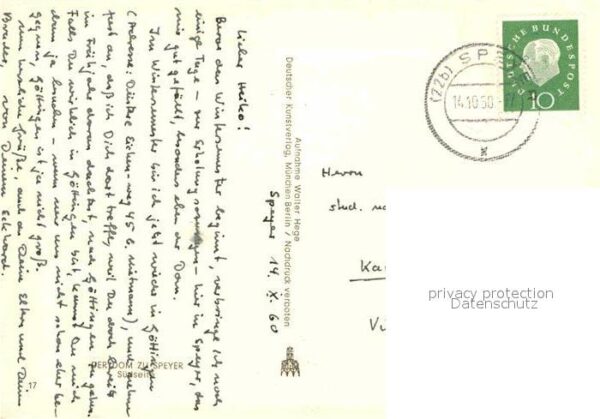 Lieber Heiko!
Bevor das Wintersemester beginnt, verbringe ich noch
einige Tage – zur Erholung sozusagen – hier in Speyer, das
mir gut gefällt, besonders eben der Dom.
Im Wintersemester bin ich jetzt wieder in Göttingen
(Adresse: Düstere Eichen-weg 45 b. ), und nehme
fest an, daß ich Dich dort treffe, weil Du doch bereits
im Frühjahr daran dachtest, nach Göttingen zu gehen.
Falls Du wirklich in Göttingen bist, kannst Du mich
dann ja besuchen – wenn wir uns nicht schon eher be-
gegnen, Göttingen ist ja nicht groß.
Nun herzliche Grüße, auch an Deine Eltern und Deinen
Bruder, von Deinem Eckhard.
Speyer 14. X. 60
Aufnahme Walter Hege
Deutscher Kunstverlag, München Berlin / Nachdruck verboten
DER DOM ZU SPEYER
Südseite
17
DEUTSCHE BUNDESPOST
10
(22b) SPEYER
14.10.60
Herrn
stud.
Ka
privacy protection
Datenschutz